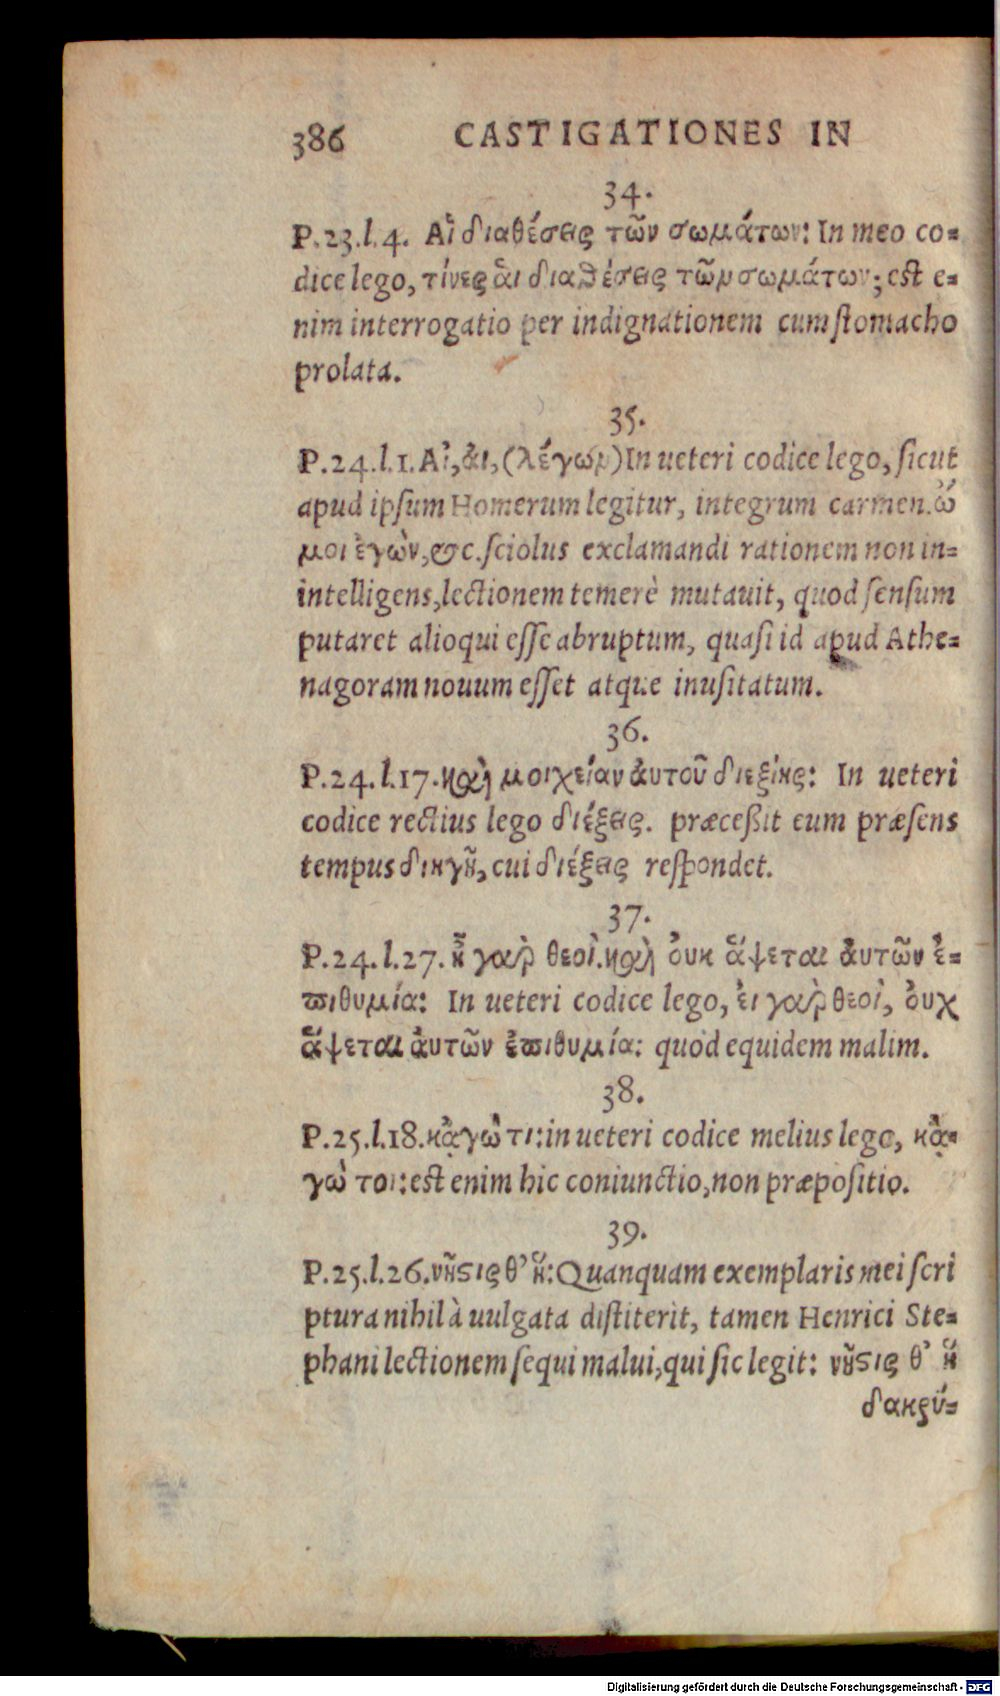 386 CASTIGATIONES IN
34.
P.23.l.4. Αἱ διαθέσεις τῶν σωμάτων: In meo co=
dice lego, τίνες ἂι διαθέσεις τῶν σωμάτων; est e=
nim interrogatio per indignationem cum stomacho
prolata.
35.
P.24.l.1. Αἴ, ἄι, (λέγων) In ueteri codice lego, sicut
apud ipsum Homerum legitur, integrum carmen. ὤ
μοι ἐγὼν, &c. sciolus exclamandi rationem non in=
intelligens, lectionem temerè mutauit, quod sensum
putaret alioqui esse abruptum, quasi id apud Athe=
nagoram nouum esset atque inusitatum.
36.
P.24.l.17. καὶ μοιχείαν ἀυτοῦ διεξίης: In ueteri
codice rectius lego διέξεις. præceßit eum præsens
tempus διηγῇ, cui διέξεις respondet.
37.
P.24.l.27. ἦ γὰρ θεοὶ. καὶ ὀυκ ἅψεται ἀυτῶν ἐ=
πιθυμία: In ueteri codice lego, ἐι γὰρ θεοὶ, ὀυχ
ἅψεται ἀυτῶν ἐπιθυμία: quod equidem malim.
38.
P.25.l.18. κᾀγὼ τι: in ueteri codice melius lego, κᾀ=
γὼ τοι: est enim hic coniunctio, non præpositio.
39.
P.25.l.26. νῆστις θ' ἥ: Quanquam exemplaris mei scri
ptura nihil à uulgata distiterit, tamen Henrici Ste=
phani lectionem sequi malui, qui sic legit: νῆστις θ' ἥ
δακρύ=
Digitalisierung gefördert durch die Deutsche Forschungsgemeinschaft - DFG